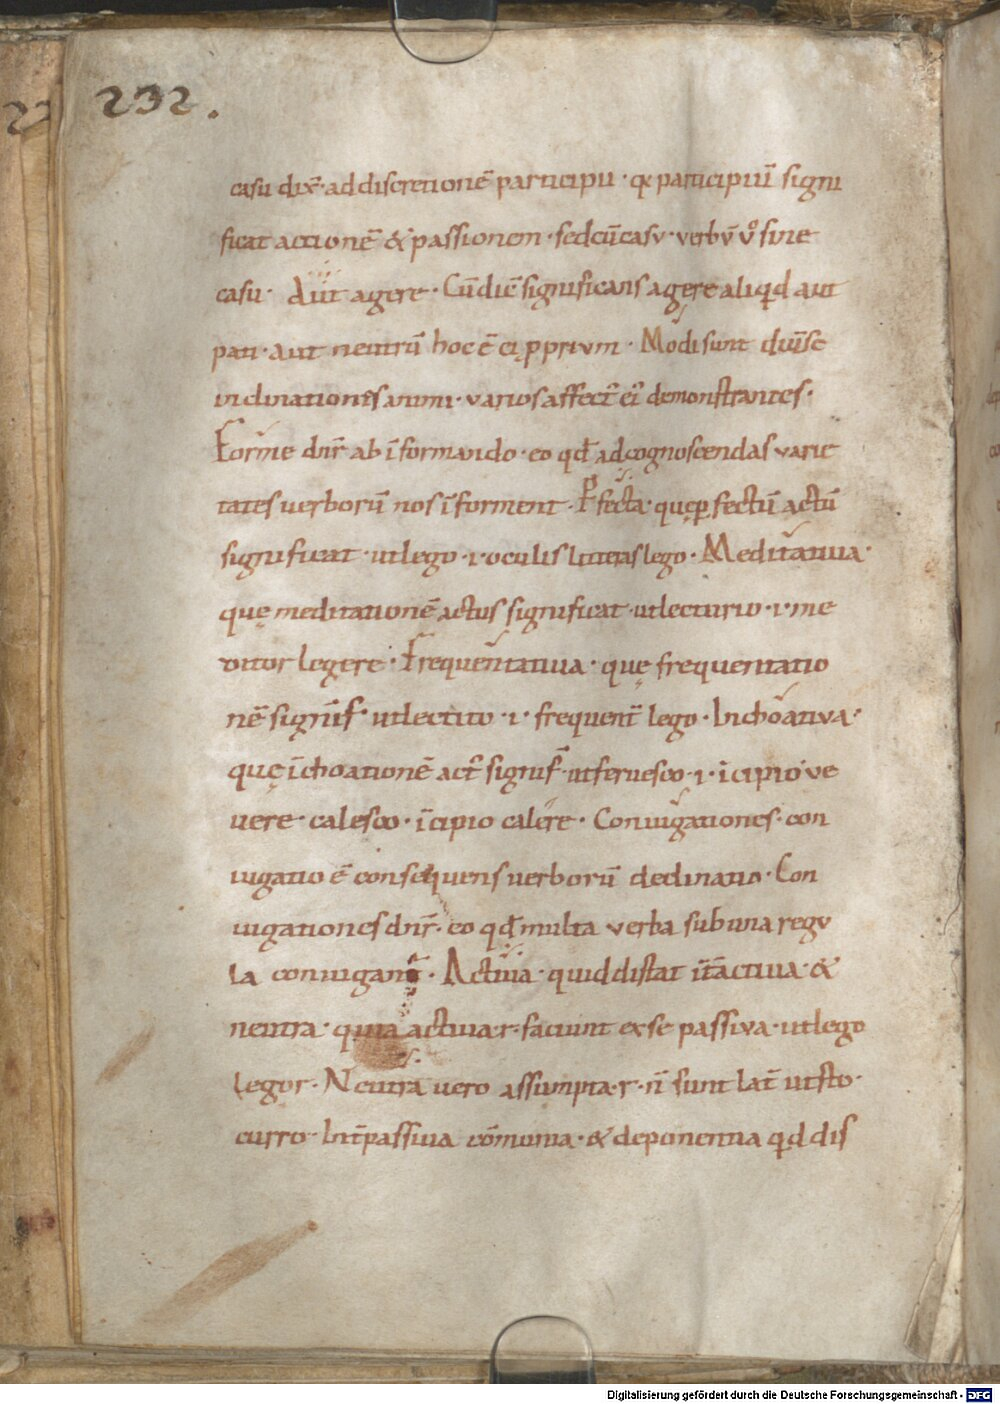 232.
casu dix̄· ad discretionē participii · q̄a participiū signi
ficat actionē & passionem · sed cū casu · verbv̄ v̊ sine
casu · Aut agere · Cū dic̄ significans agere aliqd aut
pati · aut neutrū hoc ē ei pprivm · Modi sunt diuse
inclinationes animi · varios affect̄ ei demonstrantes ·
Forme dnr̄ ab īformando · eo qđ ad cognoscendas varie
tates uerborū nos īforment · Pfecta · quę pfectū actū
significat · ut lego · i · oculis litteras lego · Meditatiua ·
quę meditationē actus significat · ut lecturio · i · me
ditor legere · Frequentatiua · quę frequentatio
nē signif · ut lectito · i · frequent̄ lego · Inchoatiua ·
quę īchoationē act̄ signif̄ · ut feruesco · i · īcipio ve
uere · calesco · īcipio calere · Coniugationes · con
iugatio ē consequens uerborū declinatio · Con
iugationes dnr̄ · eo qđ multa verba sub una regv
la coniugant̄ · Actiua · quid distat īt actiua · &
neutra · quia actiua · r · faciunt ex se passiva · ut lego
legor · Neutra vero assumpta · r · n̄ sunt lat̄ ut sto ·
curro · Int̄ passiua cōmunia · & deponentia qd dis
Digitalisierung gefördert durch die Deutsche Forschungsgemeinschaft - DFG